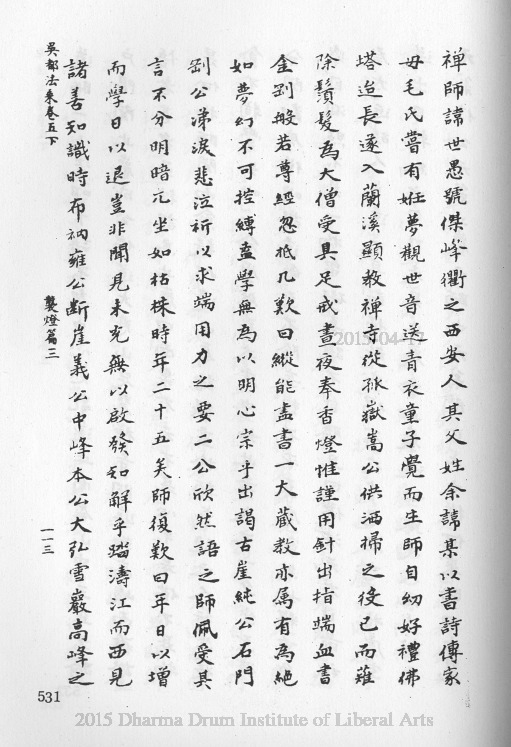 禅師諱世愚號傑峰衢之西安人其父姓余諱某以書詩傳家
母毛氏嘗有姙夢觀世音送青衣童子覺而生師自幼好禮佛
塔迨長遂入蘭溪顯教禅寺從孤嶽嵩公供洒掃之役已而薙
除鬚髮為大僧受具足戒晝夜奉香燈惟謹用針出指端血書
金剛般若尊經忽抵几歎曰縱能盡書一大蔵教亦属有為絕
如夢幻不可控縛盍學無為以明心宗乎出謁古崖純公石門
剛公涕淚悲泣祈以求端用力之要二公欣然語之師佩受其
言不分明暗兀坐如枯株時年二十五矣師復歎曰年日以增
而學日以退豈非聞見未充無以啟發知解乎踏濤江而西見
諸善知識時布衲雍公斷崖義公中峰本公大弘雪巖高峰之
吳都法乘卷五下
襲燈篇三
一一三
531
2015-04-17
2015 Dharma Drum Institute of Liberal Arts